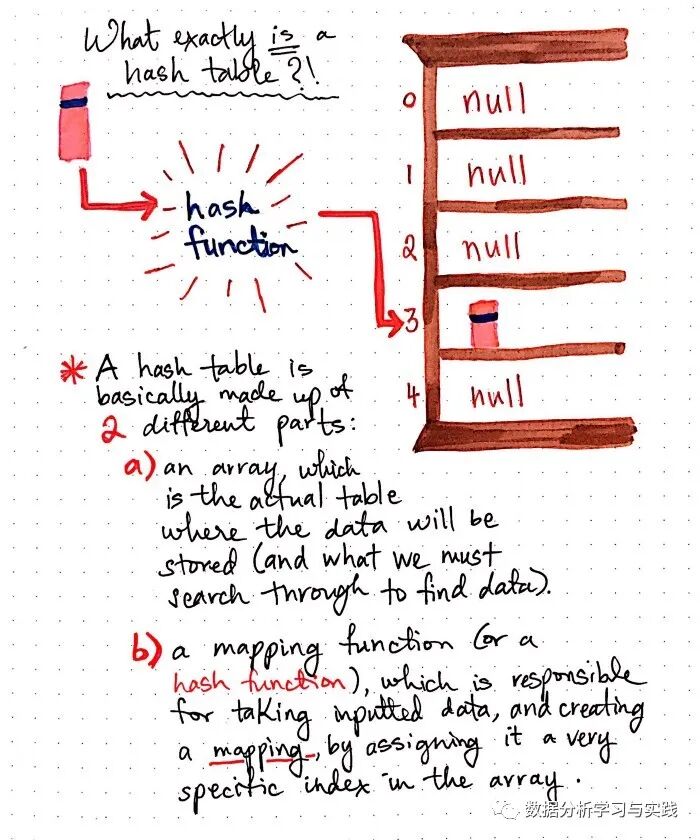 What exactly is a
hash table?!
hash
function
0 null
1 null
2 null
3
4 null
* A hash table is
basically made up of
2 different parts:
a) an array, which
is the actual table
where the data will be
stored (and what we must
search through to find data).
b) a mapping function (or a
hash function), which is responsible
for taking inputted data, and creating
a mapping, by assigning it a very
specific index in the array.
数据分析学习与实践